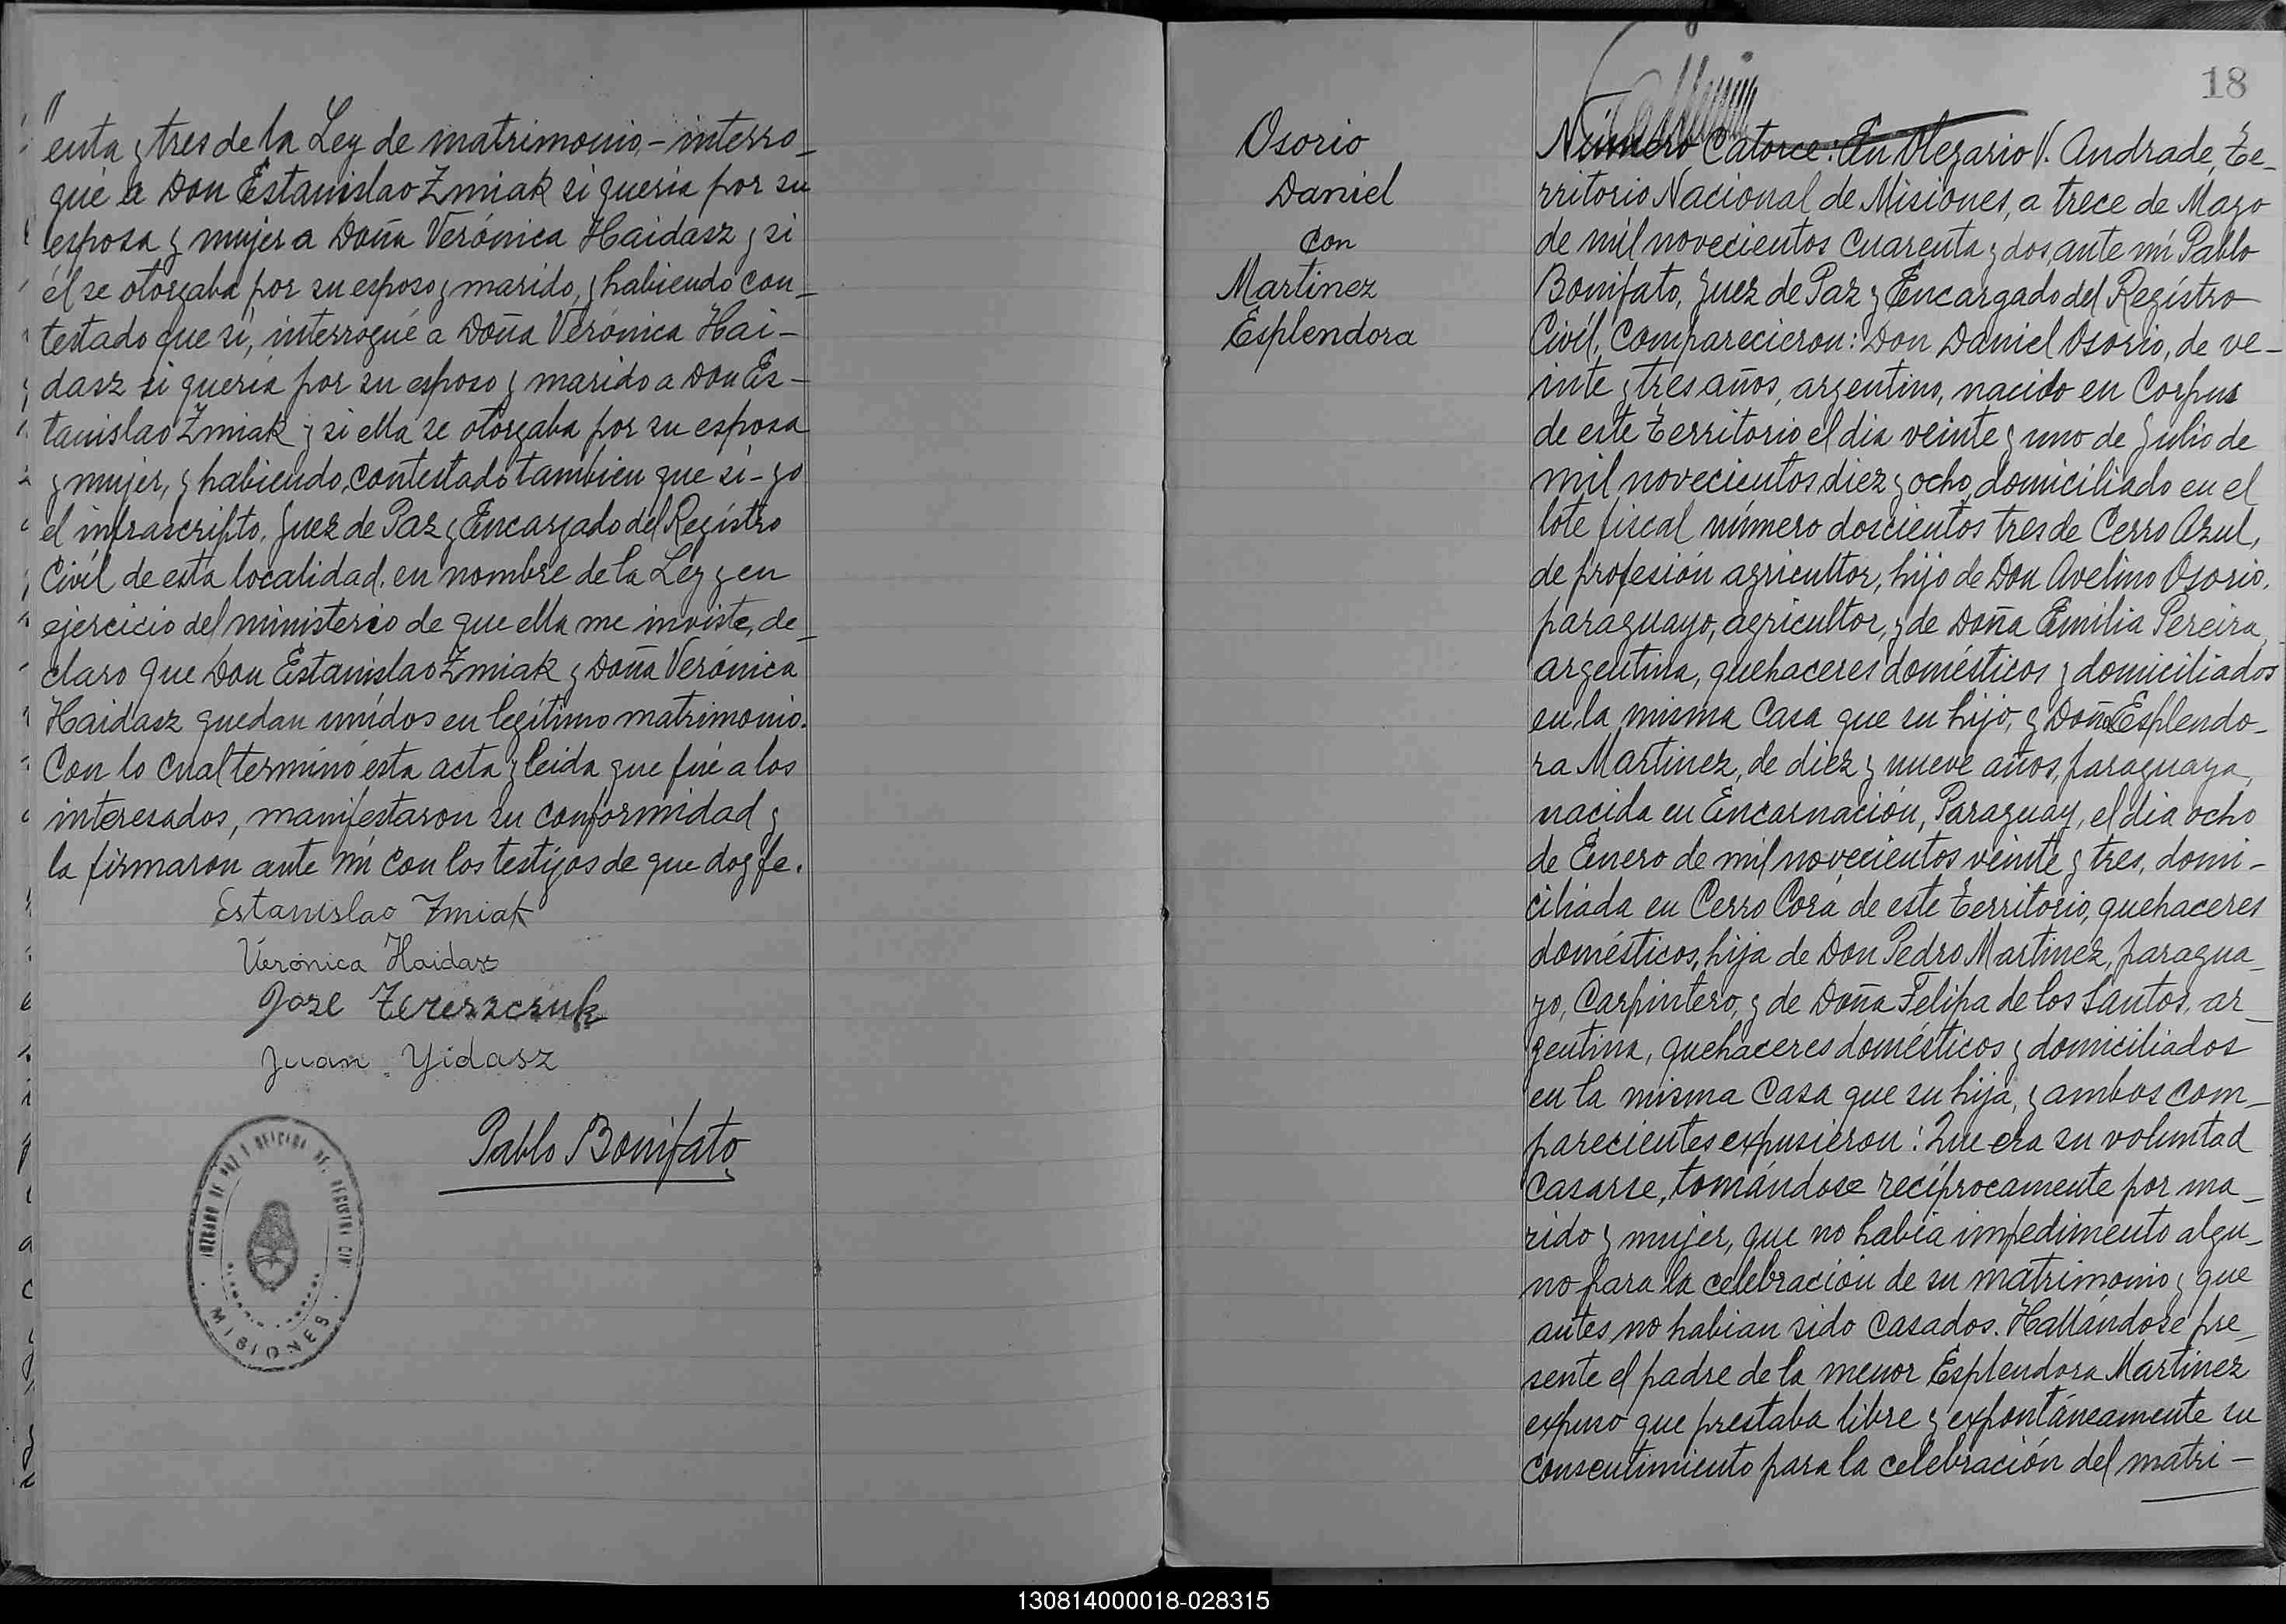 enta y tres de la Ley de matrimonio,- interro-
gué a Don Estanislao Zmiak si queria por su
esposa y mujer a Doña Verónica Haidasz y si
él se otorgaba por su esposo y marido, y habiendo con-
testado que sí, interrogué a Doña Verónica Hai-
dasz si queria por su esposo y marido a Don Es-
tanislao Zmiak y si ella se otorgaba por su esposa
y mujer, y habiendo contestado tambien que si - yo
el infrascripto, Juez de Paz y Encargado del Regístro
Civíl de esta localidad, en nombre de la Ley y en
ejercicio del ministerio de que ella me inviste, de-
claro que Don Estanislao Zmiak y Doña Verónica
Haidasz quedan unídos en legítimo matrimonio.
Con lo cual terminó esta acta y leida que fué a los
interesados, manifestaron su conformidad y
la firmaron ante mí con los testigos de que doy fe.
Estanislao Zmiak
Verónica Haidasz
José Tereszczuk
Juan Yidasz
Pablo Bonifato
JUZGADO DE PAZ Y OFICINA DEL REGISTRO CIVIL
MISIONES
18
Osorio
Daniel
con
Martinez
Esplendora
Número Catorce: En Olegario V. Andrade, Te-
rritorio Nacional de Misiones, a trece de Mayo
de mil novecientos cuarenta y dos, ante mí Pablo
Bonifato, Juez de Paz y Encargado del Regístro
Civíl, Comparecieron: Don Daniel Osorio, de ve-
inte y tres años, argentino, nacido en Corpus
de este Territorio el dia veinte y uno de Julio de
mil novecientos diez y ocho, domiciliado en el
lote fiscal número doscientos tres de Cerro Azul,
de profesión agricultor, hijo de Don Avelino Osorio,
paraguayo, agricultor, y de Doña Emilia Pereira,
argentina, quehaceres domésticos y domiciliados
en la misma casa que su hijo, y Doña Esplendo-
ra Martinez, de diez y nueve años, paraguaya,
nacida en Encarnación, Paraguay, el dia ocho
de Enero de mil novecientos veinte y tres, domi-
ciliada en Cerro Corá de este Territorio, quehaceres
domésticos, hija de Don Pedro Martinez, paragua-
yo, Carpintero, y de Doña Felipa de los Santos, ar-
gentina, quehaceres domésticos y domiciliados
en la misma casa que su hija, y ambos com-
parecientes expusieron: Que era su voluntad
casarse, tomándose recíprocamente por ma-
rido y mujer, que no habia impedimento algu-
no para la celebración de su matrimonio y que
antes no habian sido casados. Hallándose pre-
sente el padre de la menor Esplendora Martinez
expuso que prestaba libre y expontáneamente su
consentimiento para la celebración del matri-
130814000018-028315